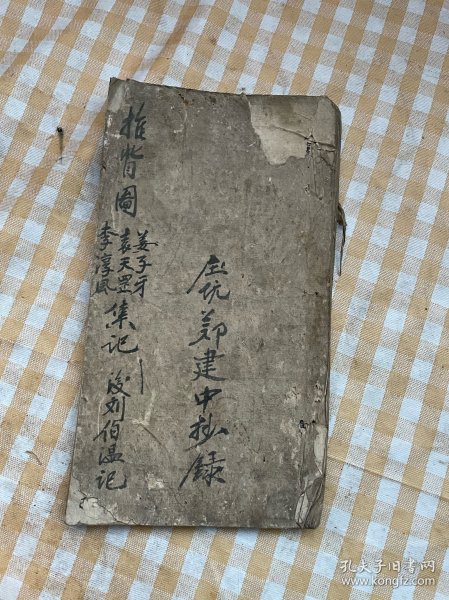 推背圖
姜子牙
袁天罡
李淳風
集记
後刘伯温记
坑鄭建中抄錄
孔夫子旧书网
www.kongfz.com